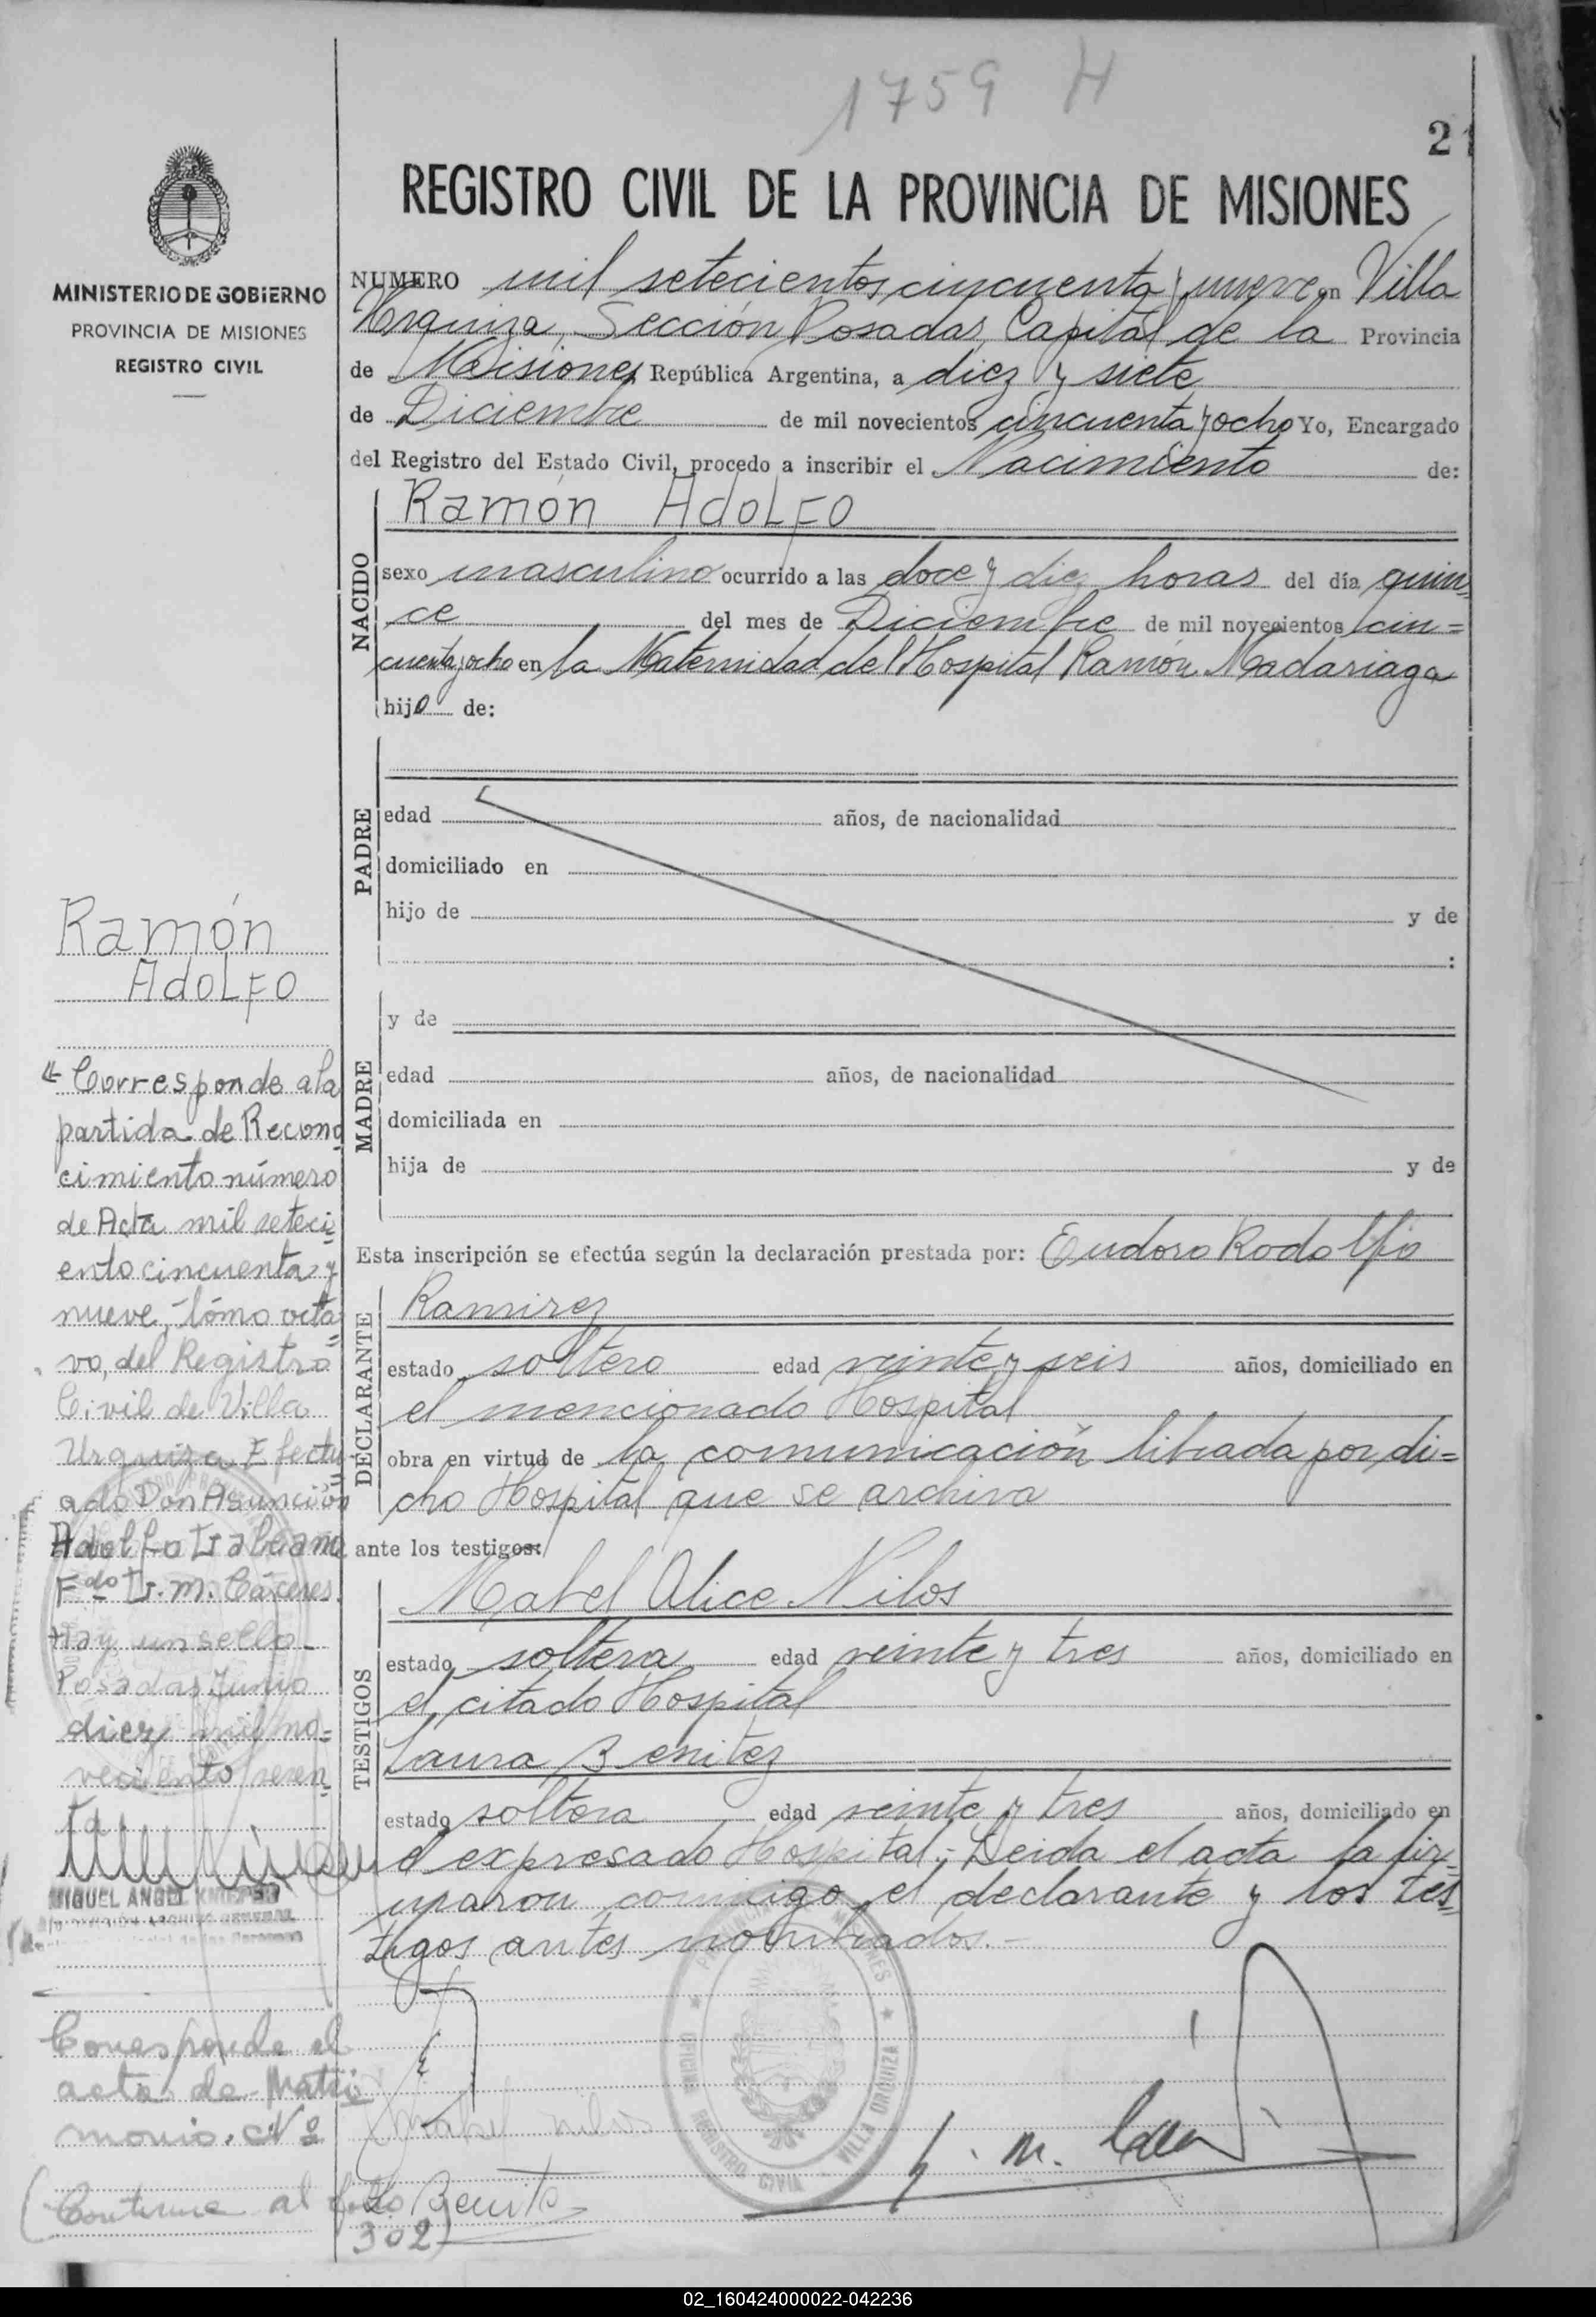 1759 H
2
REGISTRO CIVIL DE LA PROVINCIA DE MISIONES
MINISTERIO DE GOBIERNO
PROVINCIA DE MISIONES
REGISTRO CIVIL
NUMERO mil setecientos cincuenta y nueve en Villa
Urquiza, Sección Posadas, Capital de la Provincia
de Misiones República Argentina, a diez y siete
de Diciembre de mil novecientos cincuenta y ocho Yo, Encargado
del Registro del Estado Civil, procedo a inscribir el Nacimiento de:
NACIDO
Ramón Adolfo
sexo masculino ocurrido a las doce y diez horas del día quin=
ce del mes de Diciembre de mil novecientos cin=
cuenta y ocho en la Maternidad del Hospital Ramón Madariaga
hijo de:
PADRE
edad años, de nacionalidad
domiciliado en
hijo de y de
:
MADRE
y de
edad años, de nacionalidad
domiciliada en
hija de y de
Esta inscripción se efectúa según la declaración prestada por: Eudoro Rodolfo
DECLARANTE
Ramirez
estado soltero edad veinte y seis años, domiciliado en
el mencionado Hospital
obra en virtud de la comunicación librada por di=
cho Hospital que se archiva
ante los testigos:
TESTIGOS
Mabel Alice Nilos
estado soltera edad veinte y tres años, domiciliado en
el citado Hospital
Laura Benitez
estado soltera edad veinte y tres años, domiciliado en
el expresado Hospital.- Leida el acta la fir=
maron conmigo el declarante y los tes=
tigos antes nombrados.-
Ramón
Adolfo
Corresponde a la
partida de Recono
cimiento número
de Acta mil seteci
ento cincuenta y
nueve, tómo octa
vo, del Registro
Civil de Villa
Urquiza. Efectu
ado Don Asunción
Adolfo
Fdo G. M. Cáceres.
Hay un sello
Posadas Junio
diez mil no=
veciento sesen
ta
MIGUEL ANGEL
ARCHIVO GENERAL
Corresponde el
acta de Matri
monio. Nº
(Continua al folio
302)
PROVINCIA MISIONES
OFICINA REGISTRO CIVIL VILLA URQUIZA
Mabel Nilos
L. Benitez
02_160424000022-042236